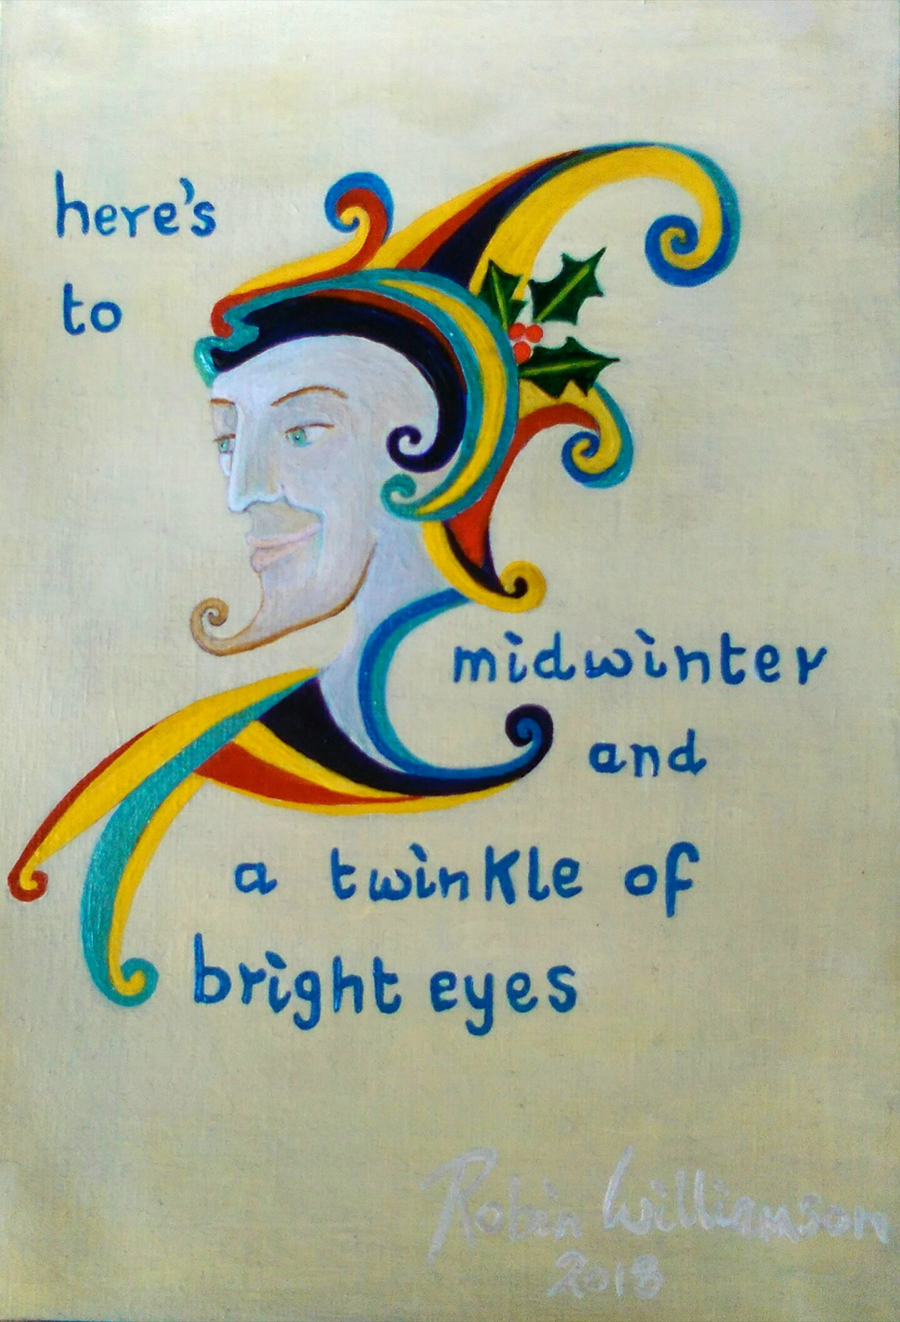 here's
to
midwinter
and
a twinkle of
bright eyes
Robin Williamson
2018